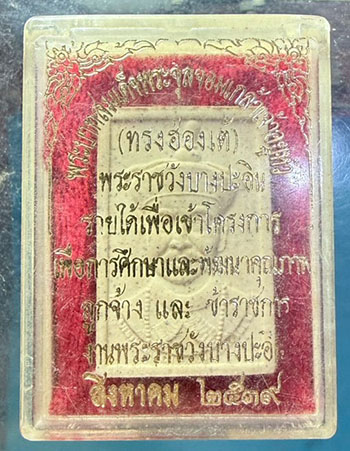 พระบาทสมเด็จพระจุลจอมเกล้าเจ้าอยู่หัว
(ทรงฮ่องเต้)
พระราชวังบางปะอิน
รายได้เพื่อเข้าโครงการ
เพื่อการศึกษาและพัฒนาคุณภาพ
ลูกจ้าง และ ข้าราชการ
งานพระราชวังบางปะอิน
สิงหาคม ๒๕๓๙